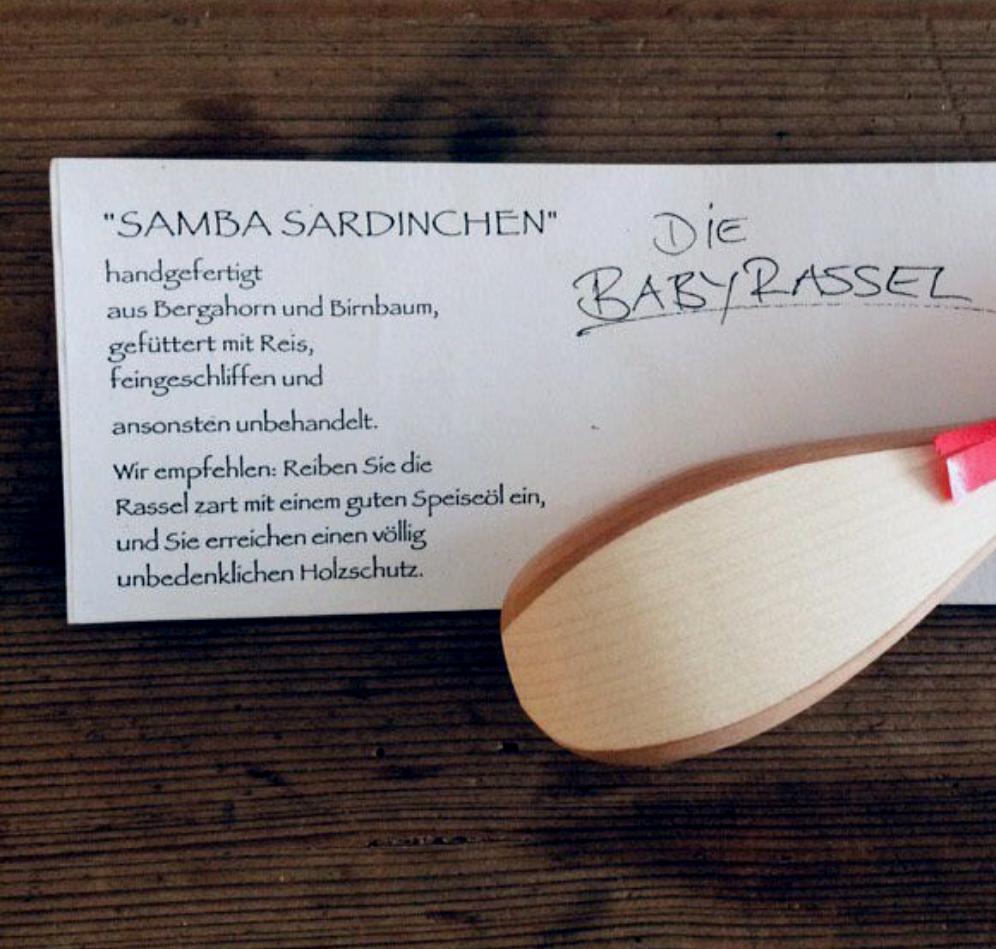 "SAMBA SARDINCHEN"
handgefertigt
aus Bergahorn und Birnbaum,
gefüttert mit Reis,
feingeschliffen und
ansonsten unbehandelt.
Wir empfehlen: Reiben Sie die
Rassel zart mit einem guten Speiseöl ein,
und Sie erreichen einen völlig
unbedenklichen Holzschutz.
DIE
BABYRASSEL